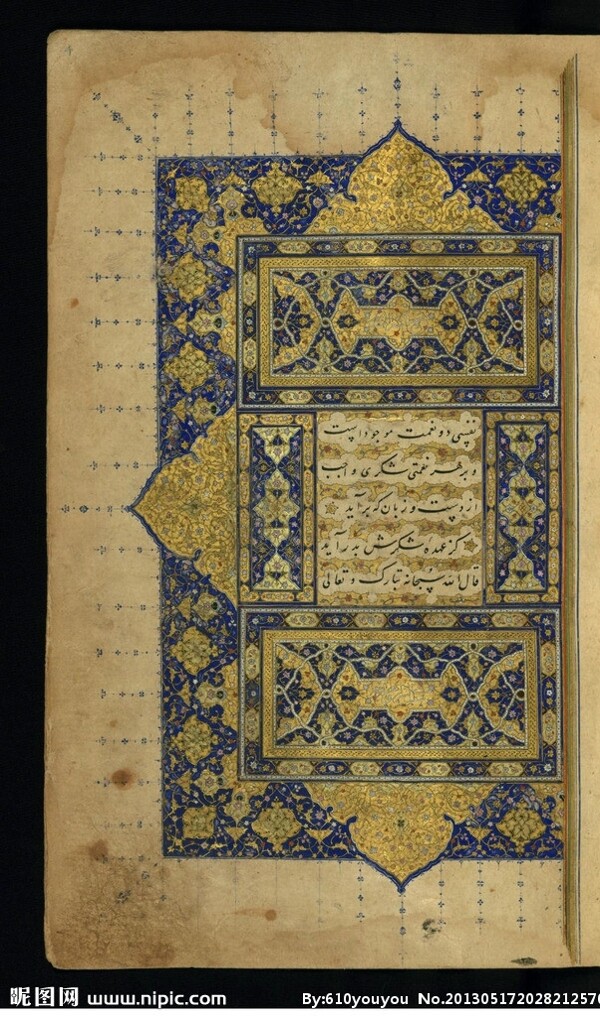 نفسی دو نعمت موجودست
و بر هر نعمتی شکری واجب
از دست و زبان که برآید
کز عهده شکرش بدر آید
قال الله سبحانه تبارک و تعالی
昵图网 www.nipic.com
By:610youyou No.201305172028212570